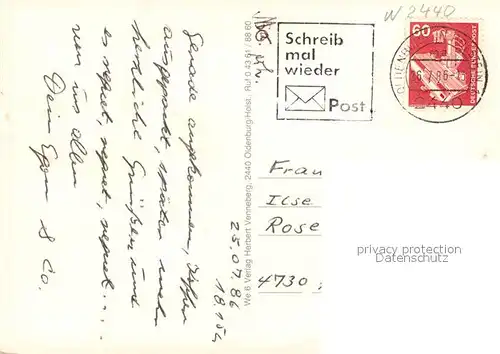 W 2440
Schreib
mal
wieder
Post
60
DEUTSCHE BUNDESPOST
2440
Gerade angekommen, Koffer
ausgepackt, später mehr
herzliche Grüße und
es regnet, regnet, regnet...
von uns allen
Dein Egon & Co.
25.07.86
18.15h
We 6 Verlag Herbert Venneberg, 2440 Oldenburg/Holst. Ruf 0 43 61 / 88 60
Frau
Ilse
Rose
4730
privacy protection
Datenschutz